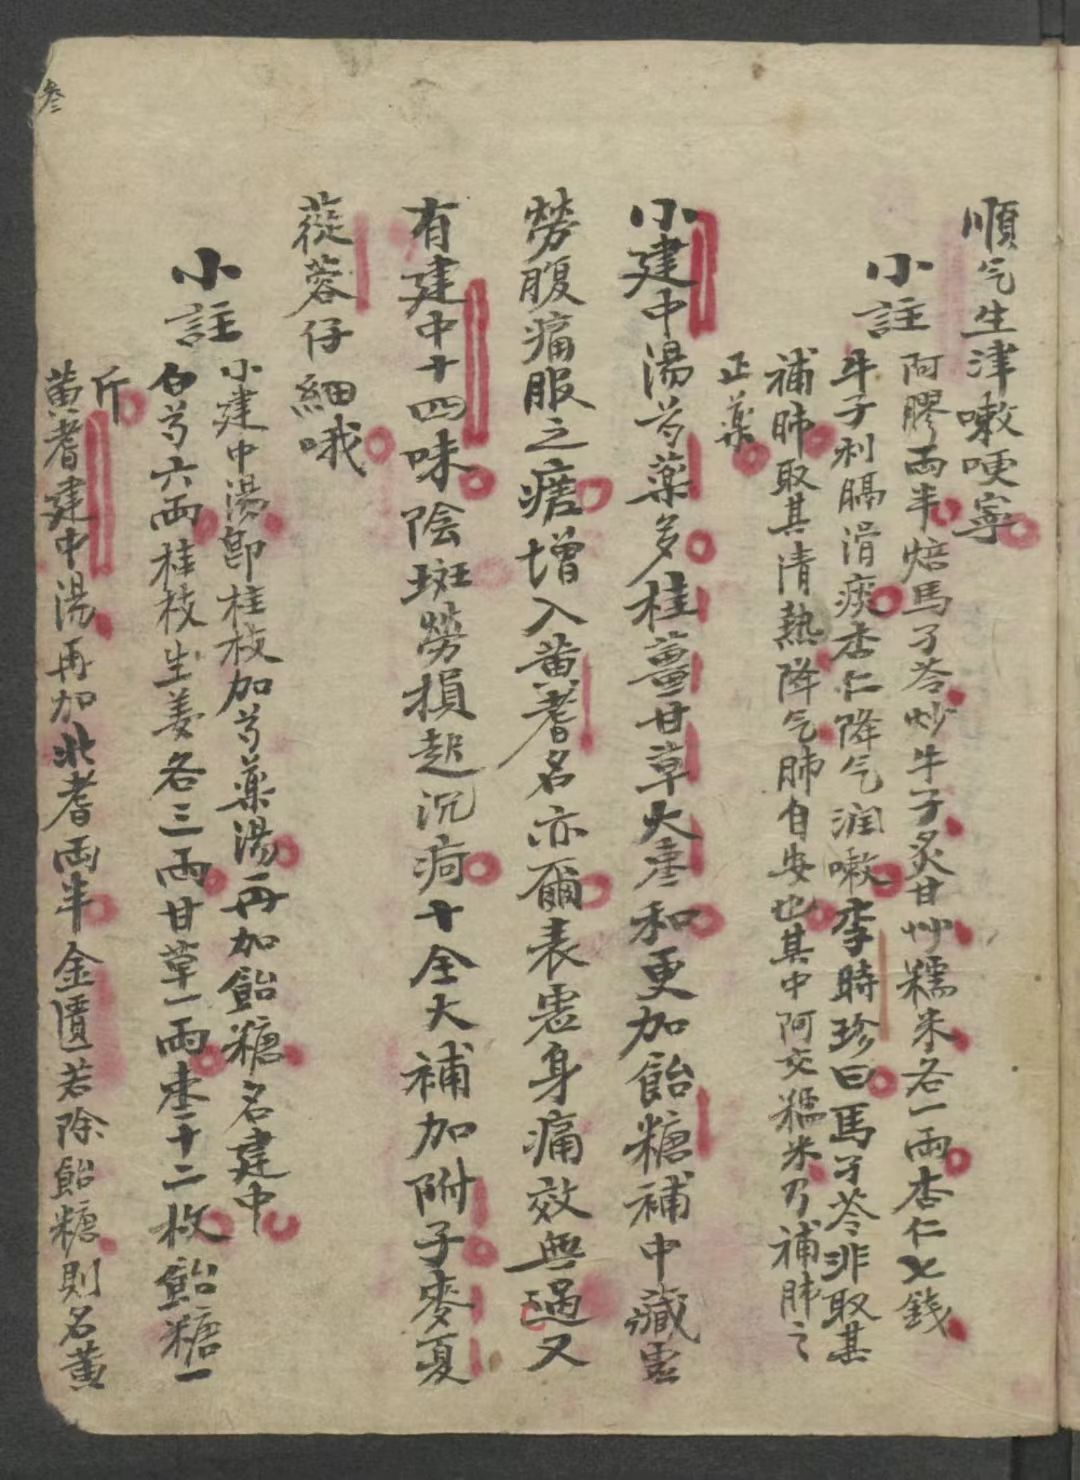 順气生津嗽哽寧
小註
阿膠両半焙馬子苓炒牛子炙甘艸糯米各一両杏仁七錢
牛子利膈滑痰杏仁降气润嗽李時珍曰馬子苓非取其
補肺取其清熱降气肺自安也其中阿交糯米乃補肺之
正藥
小建中湯芍藥多桂薑甘草大枣和更加飴糖補中藏虛
勞腹痛服之瘥增入黄耆名亦爾表虛身痛效無過又
有建中十四味陰斑勞損起沉疴十全大補加附子麥夏
蓯蓉仔細哦
小註
小建中湯即桂枝加芍藥湯再加飴糖名建中
白芍六両桂枝生姜各三両甘草一両枣十二枚飴糖一
斤
黄耆建中湯再加北耆両半金匱若除飴糖則名黄
叁